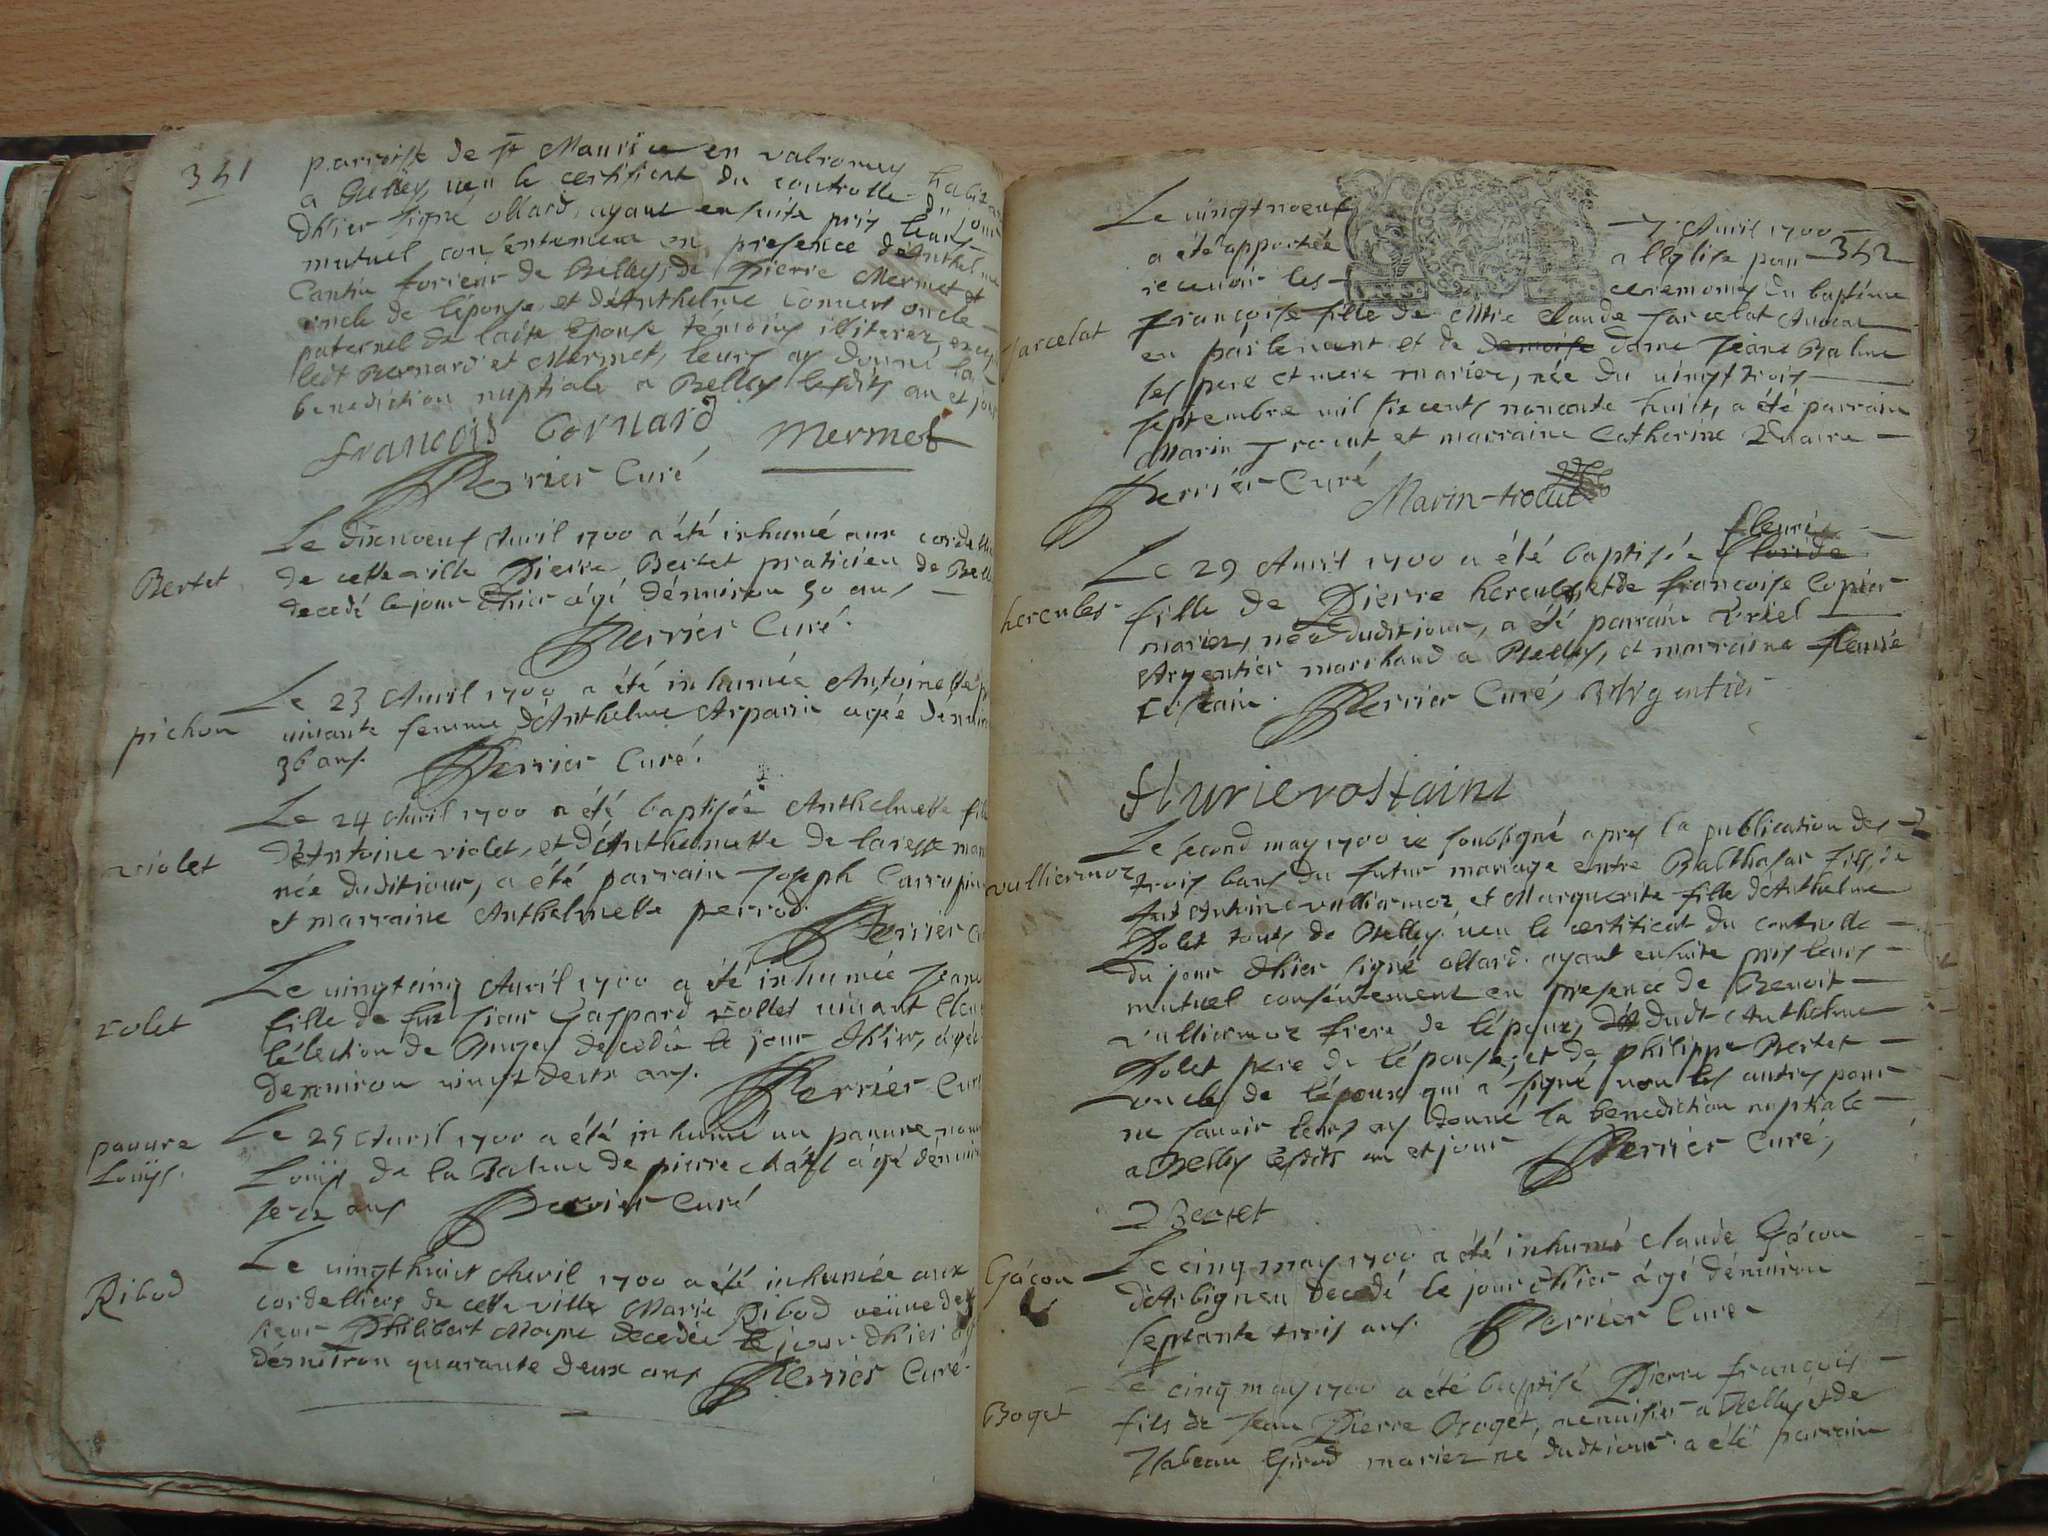 341
parroisse de St Maurice en valromey habitan
a Belley, veu le certificat du controlle du jour
d'hier signé ollard, ayant ensuite pris leurs
mutuel consentement en presence d'Anthelme
Cantin forieur de Belley, de Pierre Mermet
oncle de l'épouse, et d'Anthelme Convert oncle
paternel de ladte Epouse témoins illiterez, excep
ledt Bernard et Mermet, leurs ay donné la
benediction nuptiale a Belley lesdits an et jour
françois bernard Mermet
Perrier Curé
Bertet
Le dixnoeuf Avril 1700 a été inhumé aux cordell
de cette ville Pierre Bertet praticien de Bell
decedé le jour d'hier âgé d'environ 50 ans
Perrier Curé.
pichon
Le 23 Avril 1700 a été inhumée Antoinette pi
vivante femme d'Anthelme Arparin agée d'envir
36 ans. Perrier Curé.
violet
Le 24 Avril 1700 a été baptisée Anthelmette fill
d'Antoine violet, et d'Anthelmette de laresse mari
née duditjour, a été parrain Joseph Carrupin
et marraine Anthelmette perrod. Perrier Cu
rolet
Le vingtcinq Avril 1700 a été inhumée Jeanne
fille de fut sieur Gaspard rollet vivant Eleu
l'élection de Bugey decedée le jour d'hier, agée
d'environ vingt deux ans. Perrier Curé
pauure
Louÿs.
Le 25 Avril 1700 a été inhumé un pauure nom
Louÿs de la Balme de pierre châtel âgé d'envir
seize ans Perrier Curé
Ribod
Le vingthuit Avril 1700 a été inhumée aux
cordelliers de cette ville Marie Ribod veüve de
sieur Philibert decedée le jour d'hier ag
d'environ quarante deux ans Perrier Curé.
342
Le vingtnoeuf Avril 1700
a été apportée a l'église pour
recevoir les ceremonies du baptême
françoise fille de Mtre Claude Jarcelat Avocat
en parlement et de dame Jeane Balme
ses pere et mere mariez, née du vingt trois
septembre mil six cents nonante huit, a été parrain
Marin Trocut et marraine Catherine
Jarcelat
Perrier Curé Marin trocut
hercules
Le 29 Avril 1700 a été baptisée fleurie
fille de Pierre hercules, et de françoise Copier
mariez, née duditjour, a été parrain Uriel
Argentier marchand a Belley, et marraine fleurie
rostain. Perrier Curé, Argentier
flurierostaint
vulliermoz
Le second may 1700 je soubsigné apres la publication des
trois bans du futur mariage entre Balthasar fils de
fut Antoine vulliermoz, et Marguerite fille d'Anthelme
Polet touts de Belley. veu le certificat du controlle
du jour d'hier signé ollard. ayant ensuite pris leurs
mutuel consentement en presence de Benoit
vulliermoz frere de l'époux, dudt Anthelme
Polet pere de l'épouse, et de philippe Bertet
oncle de l'époux qui a signé, non les autres pour
ne sauoir leurs ay donné la benediction nuptiale
a Belley lesdits an et jour Perrier Curé,
P Bertet
Gâcon
Le cinq may 1700 a été inhumé claude Gâcon
d'Arbigneu decedé le jour d'hier âgé d'environ
septante trois ans Perrier Curé
Boget
Le cinq may 1700 a été baptisé Pierre françois
fils de Jean Pierre Boget, menuisier a Belley et de
Isabeau Girod mariez né dudtjour a été parrain